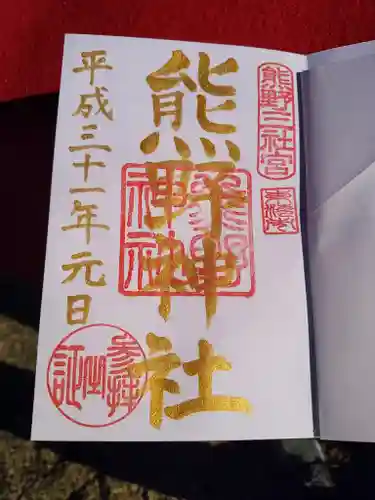 熊野三社宮
熊野神社
熊野
神社
平成三十一年元日
参拝
証